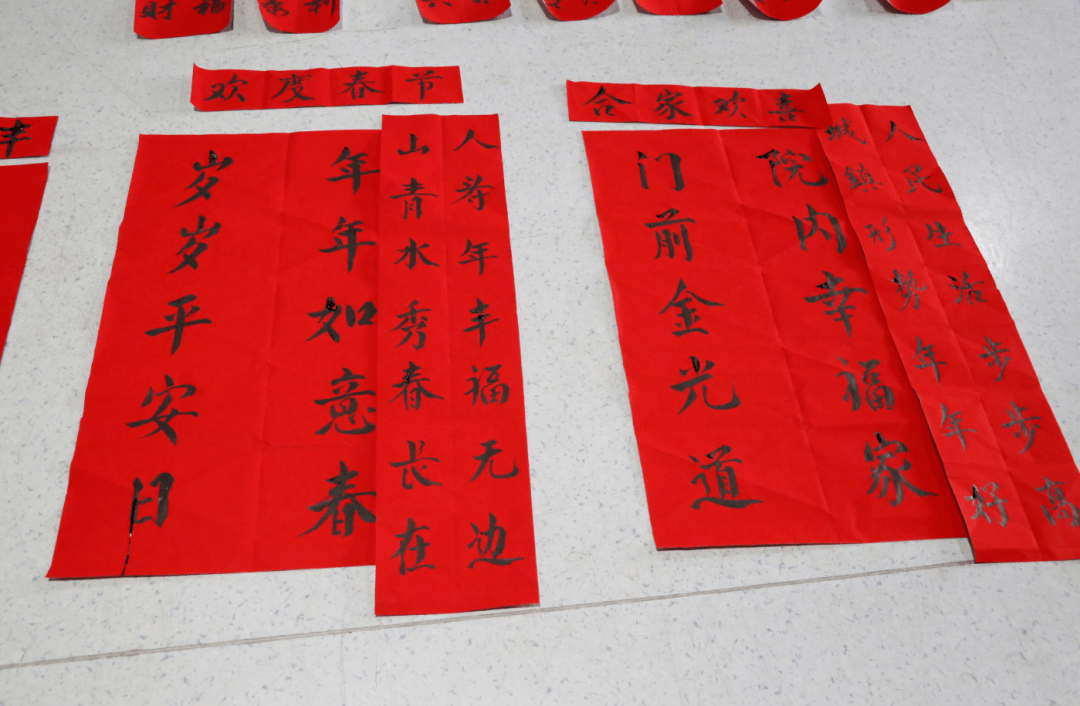 財
福
利
欢度春节
合家欢喜
丰
岁岁平安日
年年如意春
山青水秀春长在
人寿年丰福无边
门前金光道
院内幸福家
城鎮形势年年好
人民生活步步高